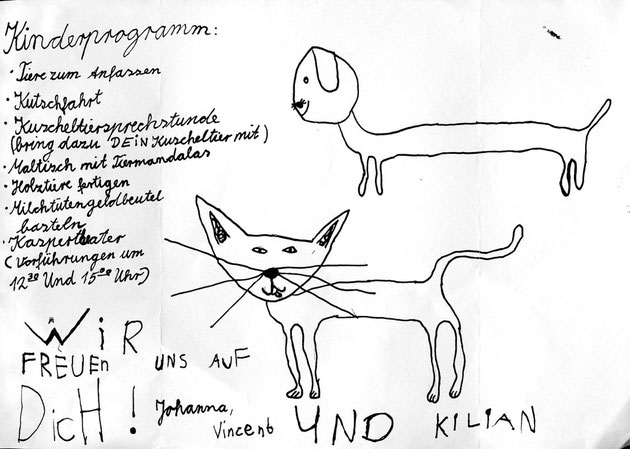 Kinderprogramm:
• Tiere zum Anfassen
• Kutschfahrt
• Kuscheltiersprechstunde
(bring dazu DEiN Kuscheltier mit)
• Maltisch mit Tiermandalas
• Holztiere fertigen
• Milchtütengeldbeutel
basteln
• Kaspertheater
(Vorführungen um
12³⁰ Und 15⁰⁰ Uhr)
WiR
FREUEn UNS AUF
DicH!
Johanna,
Vincent UND KILIAN